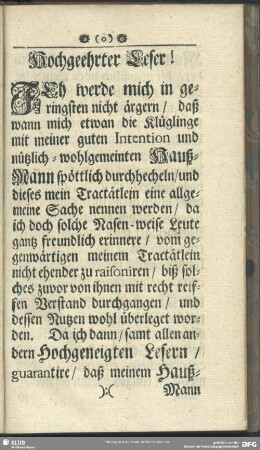 (o)
Hochgeehrter Leser!
ICh werde mich in ge-
ringsten nicht ärgern/ daß
wann mich etwan die Klüglinge
mit meiner guten Intention und
nützlich-wohlgemeinten Hauß-
Mann spöttlich durchhecheln/und
dieses mein Tractätlein eine allge-
meine Sache nennen werden/ da
ich doch solche Nasen-weise Leute
gantz freundlich erinnere/ vom ge-
genwärtigen meinem Tractätlein
nicht ehender zu raisoniren/ biß sol-
ches zuvor von ihnen mit recht reif-
fen Verstand durchgangen/ und
dessen Nutzen wohl überleget wor-
den. Da ich dann/ samt allen an-
dern Hochgeneigten Lesern/
guarantire/ daß meinem Hauß-
):( Mann
SLUB
DFG